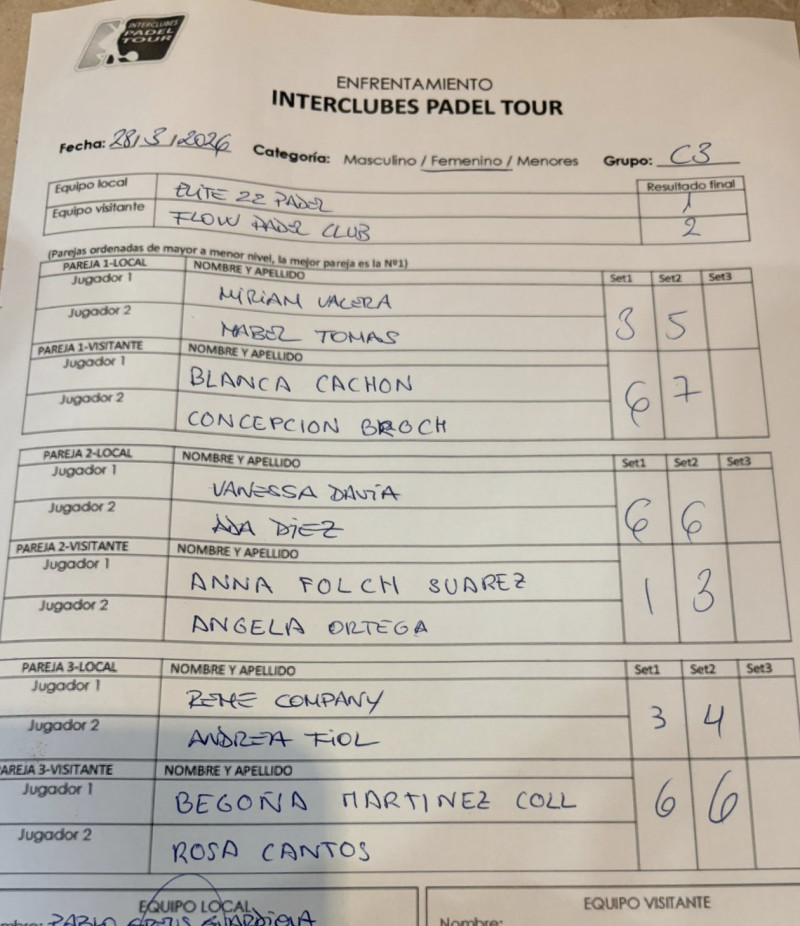 INTERCLUBES
PADEL
TOUR
ENFRENTAMIENTO
INTERCLUBES PADEL TOUR
Fecha: 28/3/2026 Categoría: Masculino / Femenino / Menores Grupo: C3
Equipo local ELITE 22 PADEL Resultado final 1
Equipo visitante FLOW PADEL CLUB 2
(Parejas ordenadas de mayor a menor nivel, la mejor pareja es la Nº1)
PAREJA 1-LOCAL NOMBRE Y APELLIDO Set1 Set2 Set3
Jugador 1 MIRIAM VALERA
Jugador 2 MABEL TOMAS 3 5
PAREJA 1-VISITANTE NOMBRE Y APELLIDO
Jugador 1 BLANCA CACHON 6 7
Jugador 2 CONCEPCION BROCH
PAREJA 2-LOCAL NOMBRE Y APELLIDO Set1 Set2 Set3
Jugador 1 VANESSA DAVIA
Jugador 2 ADA DIEZ 6 6
PAREJA 2-VISITANTE NOMBRE Y APELLIDO
Jugador 1 ANNA FOLCH SUAREZ 1 3
Jugador 2 ANGELA ORTEGA
PAREJA 3-LOCAL NOMBRE Y APELLIDO Set1 Set2 Set3
Jugador 1 REME COMPANY 3 4
Jugador 2 ANDREA FIOL
AREJA 3-VISITANTE NOMBRE Y APELLIDO
Jugador 1 BEGOÑA MARTINEZ COLL 6 6
Jugador 2 ROSA CANTOS
EQUIPO LOCAL EQUIPO VISITANTE
PABLO Nombre: